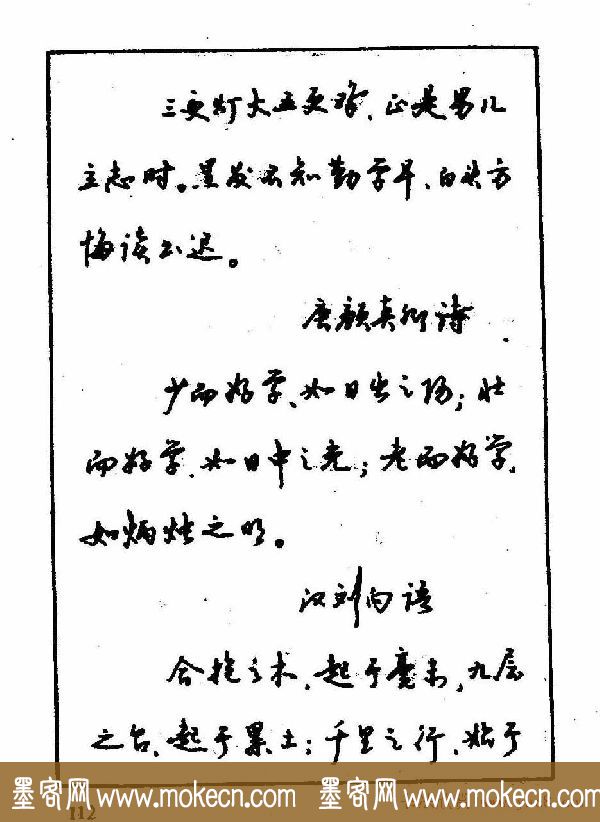 三更灯火五更鸡，正是男儿
立志时。黑发不知勤学早，白头方
悔读书迟。
唐颜真卿诗
少而好学，如日出之阳；壮
而好学，如日中之光；老而好学，
如炳烛之明。
汉刘向语
合抱之木，起于毫末，九层
之台，起于累土；千里之行，始于
墨客网 www.mokecn.com 墨客网 www.mokecn.com
112